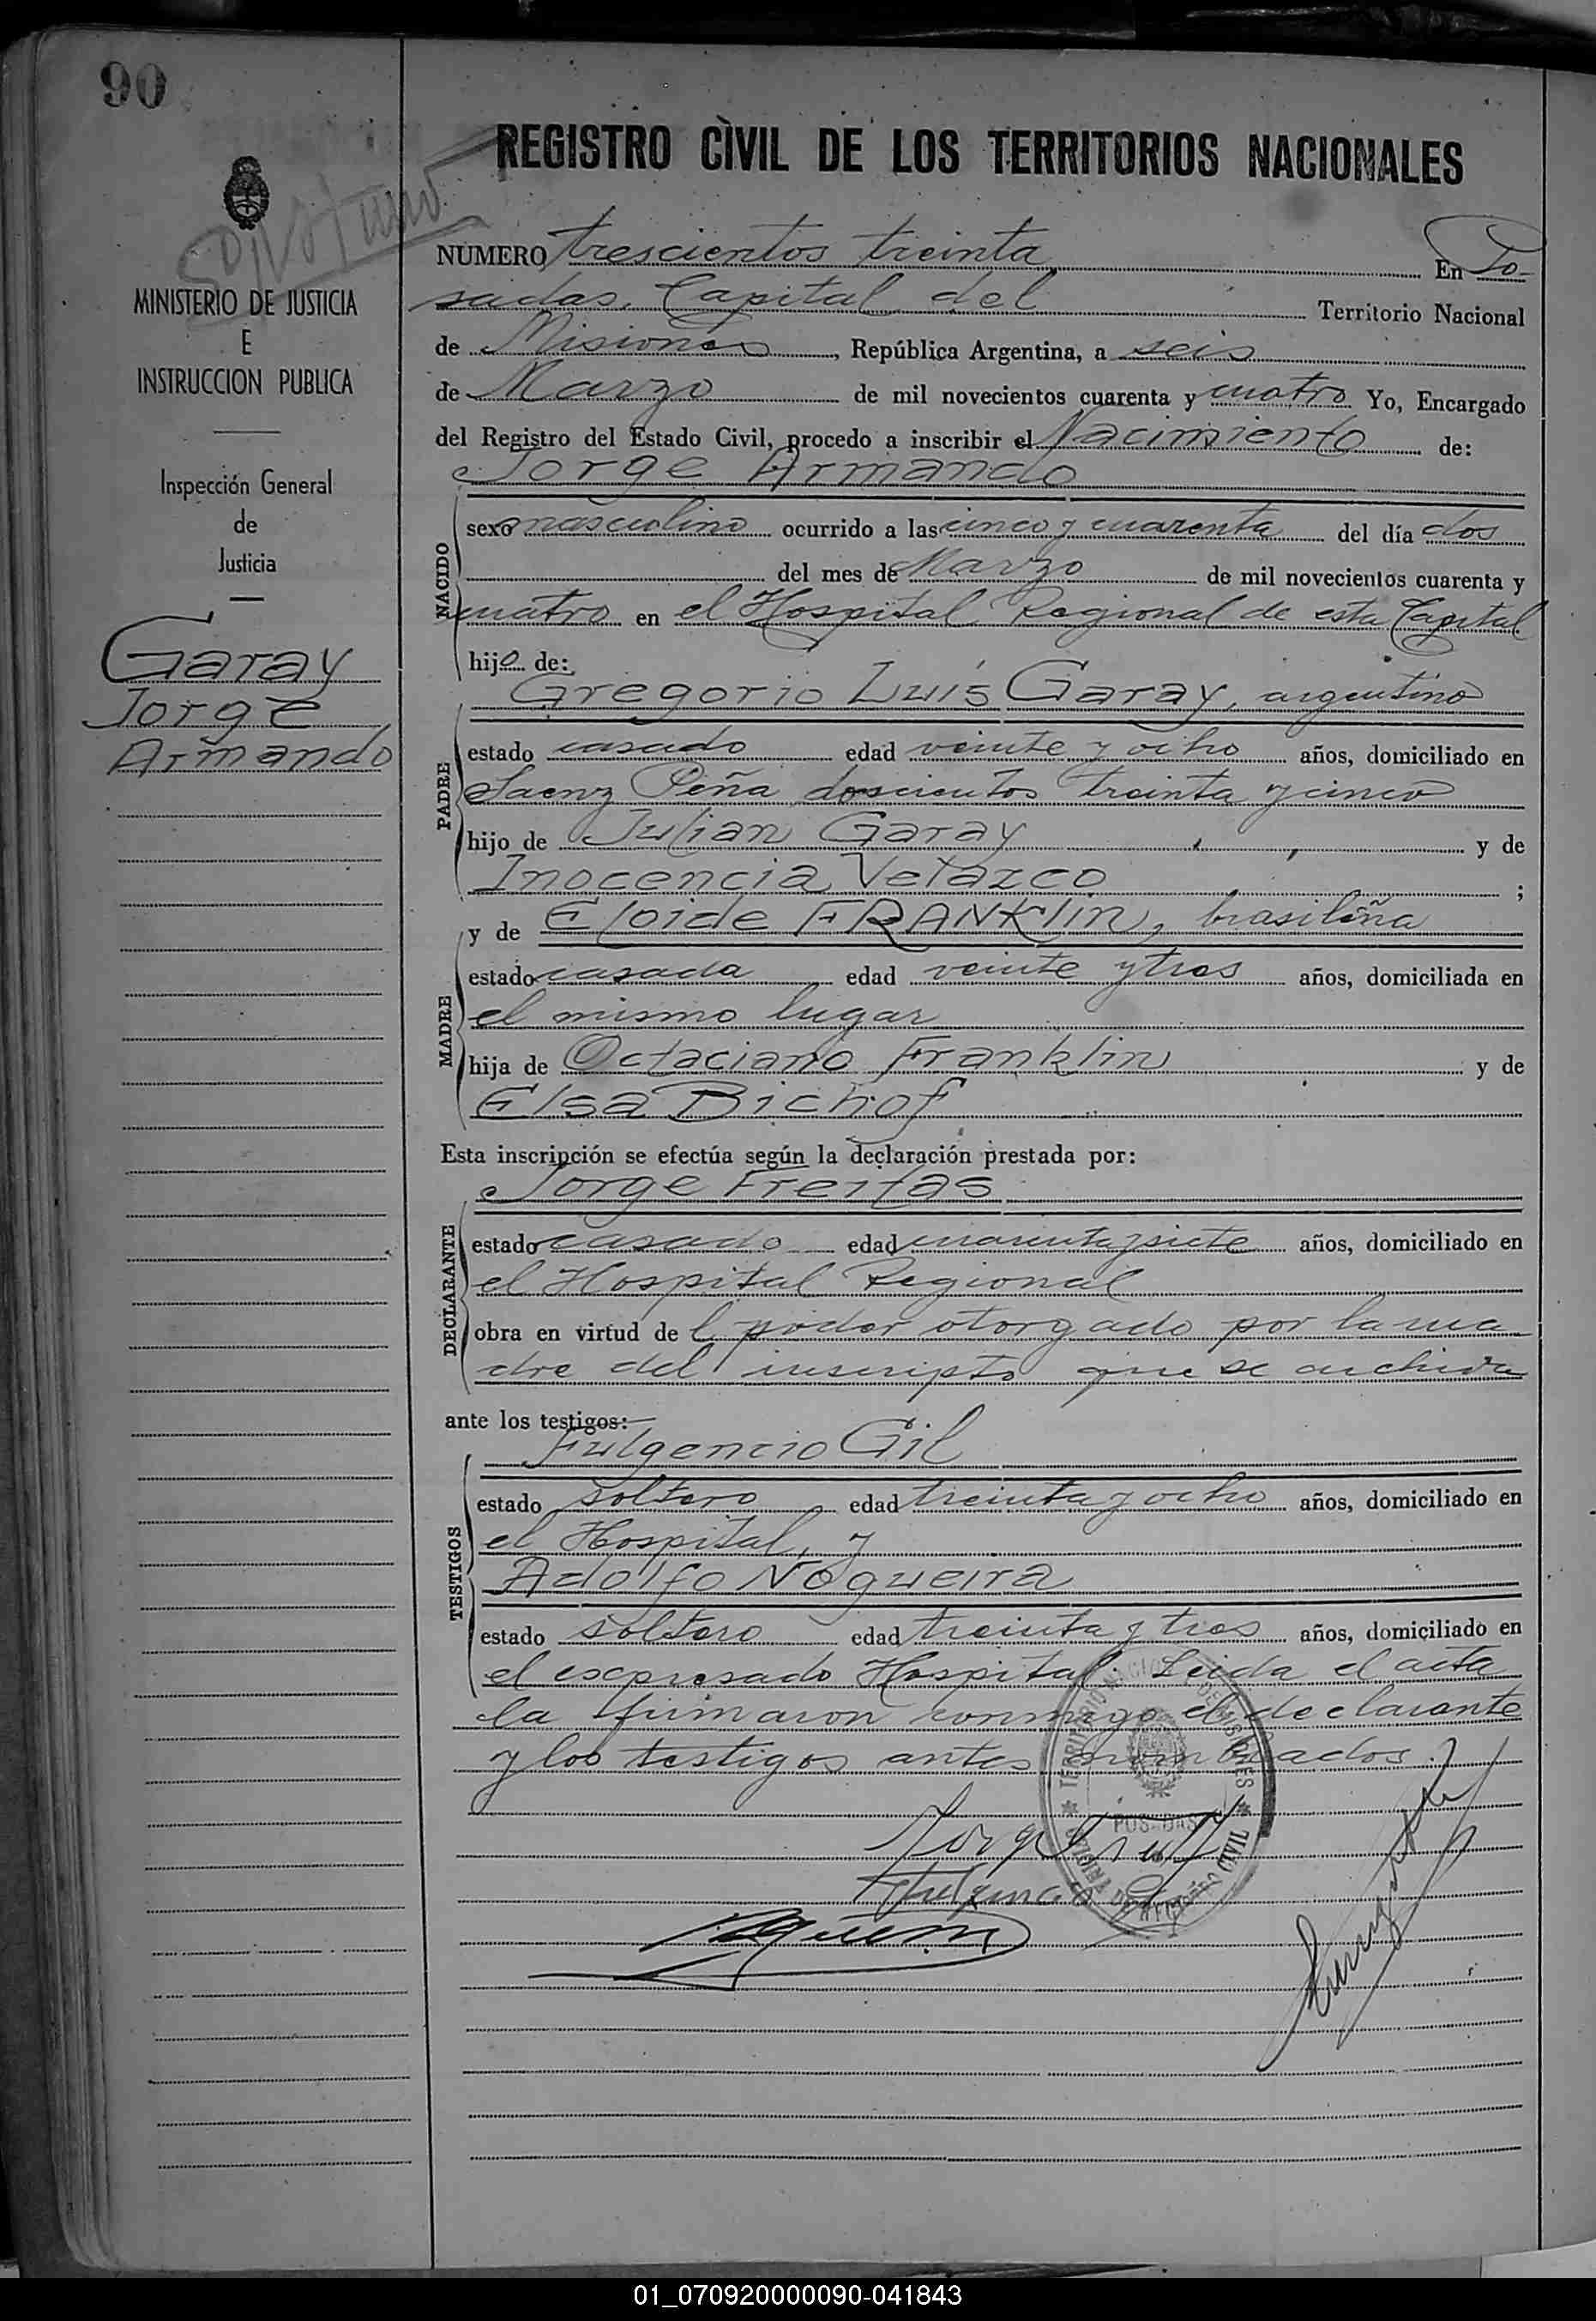 90
REGISTRO CÌVIL DE LOS TERRITORIOS NACIONALES
MINISTERIO DE JUSTICIA
E
INSTRUCCION PUBLICA
Inspección General
de
Justicia
Garay
Jorge
Armando
NUMERO trescientos treinta En Po-
sadas, Capital del Territorio Nacional
de Misiones, República Argentina, a seis
de Marzo de mil novecientos cuarenta y cuatro Yo, Encargado
del Registro del Estado Civil, procedo a inscribir el Nacimiento de:
Jorge Armando
NACIDO
sexo masculino ocurrido a las cinco y cuarenta del día dos
del mes de Marzo de mil novecientos cuarenta y
cuatro en el Hospital Regional de esta Capital
hijo de:
Gregorio Luis Garay, argentino
PADRE
estado casado edad veinte y ocho años, domiciliado en
Saenz Peña doscientos treinta y cinco
hijo de Julian Garay y de
Inocencia Velazco ;
y de Eloide FRANKlin, brasileña
MADRE
estado casada edad veinte y tres años, domiciliada en
el mismo lugar
hija de Octaciano Franklin y de
Elsa Bichof
Esta inscripción se efectúa según la declaración prestada por:
Jorge Freitas
DECLARANTE
estado casado edad cuarenta y siete años, domiciliado en
el Hospital Regional
obra en virtud de l poder otorgado por la ma-
dre del inscripto que se archiva
ante los testigos:
Fulgencio Gil
TESTIGOS
estado soltero edad treinta y ocho años, domiciliado en
el Hospital, y
Adolfo Nogueira
estado soltero edad treinta y tres años, domiciliado en
el expresado Hospital. Leida el acta
la firmaron conmigo el declarante
y los testigos antes nombrados.
TERRITORIO NACIONAL DE MISIONES
POSADAS
01_070920000090-041843